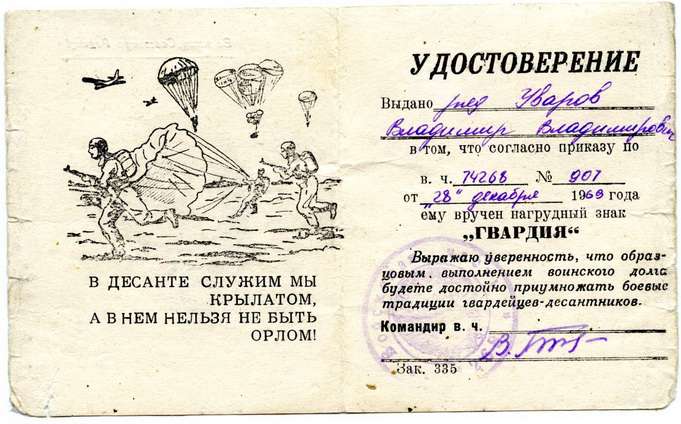 В ДЕСАНТЕ СЛУЖИМ МЫ
КРЫЛАТОМ,
А В НЕМ НЕЛЬЗЯ НЕ БЫТЬ
ОРЛОМ!
УДОСТОВЕРЕНИЕ
Выдано ряд Уваров
Владимир Владимирович
в том, что согласно приказу по
в. ч. 74268 № 907
от "28" декабря 1969 года
ему вручен нагрудный знак
„ГВАРДИЯ“
Выражаю уверенность, что образ-
цовым выполнением воинского долга
будете достойно приумножать боевые
традиции гвардейцев-десантников.
Командир в. ч.
Зак. 335